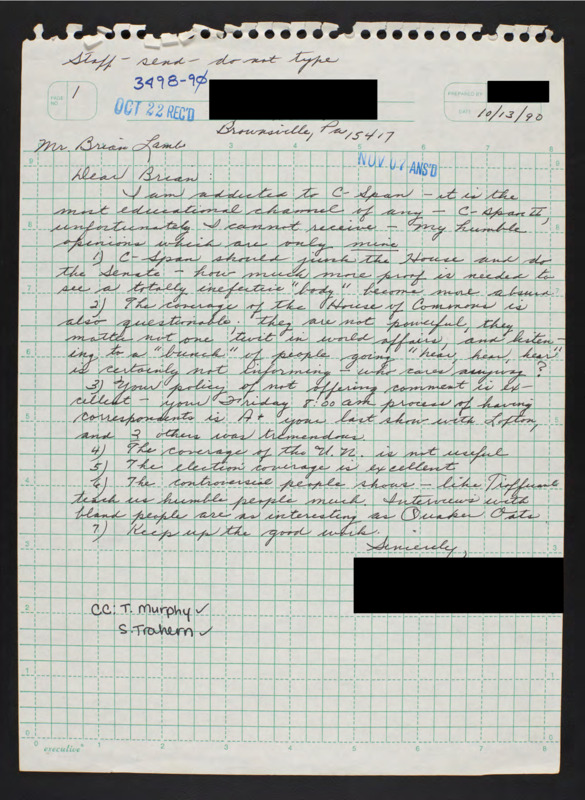 Staff - send - do not type
3498-90
PAGE NO. 1
OCT 22 REC'D
PREPARED BY
DATE 10/13/90
Brownsville, Pa 15417
Mr. Brian Lamb
NOV 07 ANS'D
Dear Brian:
I am addicted to C-Span - it is the
most educational channel of any - C-Span II,
unfortunately I cannot receive - My humble
opinions which are only mine
1) C-Span should junk the House and do
the Senate - how much more proof is needed to
see a totally inefective "body" become more absurd
2) The coverage of the House of Commons is
also questionable. they are not powerful, they
matter not one twit in world affairs, and listen-
ing to a "bunch" of people going "hear, hear, hear"
is certainly not informing - who cares anyway?
3) Your policy of not offering comment is ex-
cellent - your Friday 8:00 am process of having
correspondents is A+ your last show with Lofton,
and 3 others was tremendous.
4) The coverage of the U.N. is not useful
5) The election coverage is excellent
6) The controversial people shows - like Trafficant
teach us humble people much. Interviews with
bland people are as interesting as Quaker Oats
7) Keep up the good work.
Sincerely,
CC: T. Murphy ✓
S. Trahern ✓
executive